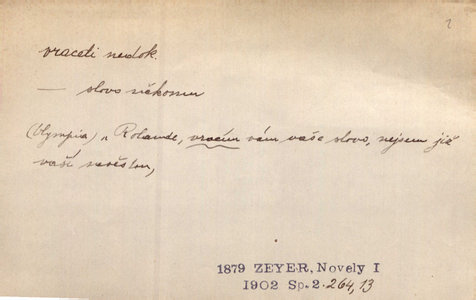 2
vraceti nedok.
— slovo někomu
(Olympia) „Rolande, vracím vám vaše slovo, nejsem již
vaší nevěstou,
1879 ZEYER, Novely I
1902 Sp. 2. 264,13